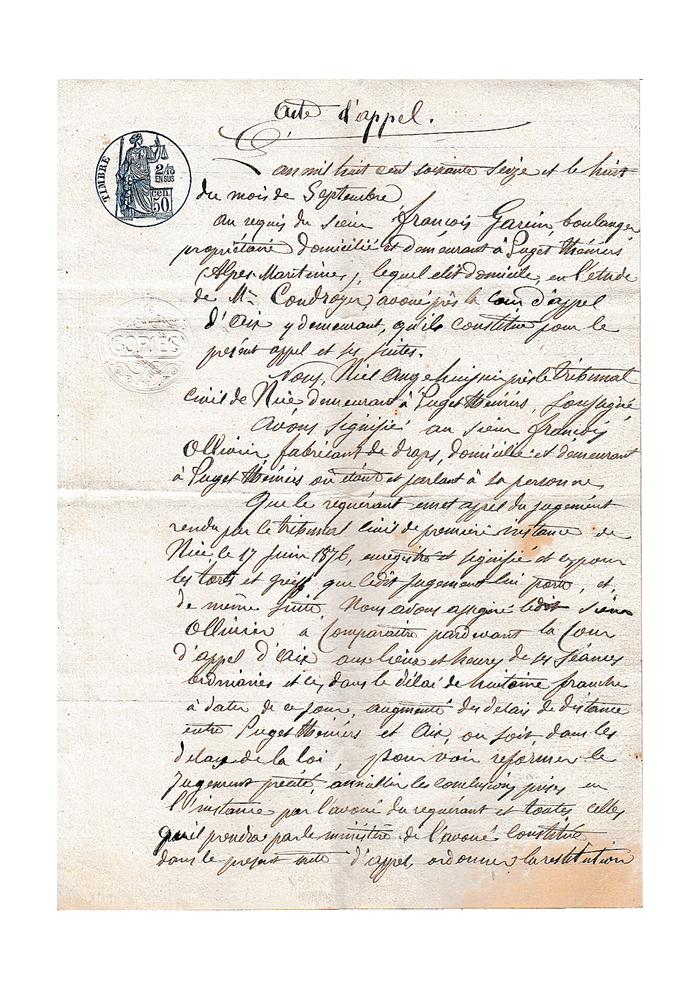 Acte d'appel.
TIMBRE
2/10
EN SUS
50
COPIES
L'an mil huit cent soixante seize et le huit
du mois de Septembre
au requis du sieur françois Garein, boulanger
propriétaire domicilié et demeurant à Puget théniers
(Alpes Maritimes), lequel élit domicile, en l'étude
de Me Condroyer, avoué près la cour d'appel
d'aix y demeurant, qu'ils constitue pour le
présent appel et ses suites.
Nous, Niel Ange huissier près le tribunal
civil de Nice demeurant à Puget théniers soussigné
avons signifié au sieur françois
Ollivier fabricant de draps, domicilié et demeurant
à Puget théniers où étant et parlant à sa personne
Que le requérant émet appel du jugement
rendu par le tribunal civil de première instance de
Nice, le 17 Juin 1876, enregistré et signifié et ce, pour
les torts et griefs que ledit jugement lui porte, et,
de même suite, Nous avons assigné ledit sieur
Ollivier à comparaitre pardevant la Cour
d'appel d'aix aux lieux et heures de ses séances
ordinaires et ce, dans le délai de huitaine franche
à dater de ce jour, augmenté des délais de distance
entre Puget théniers et Aix, ou soit dans les
délais de la loi, pour voir réformer le
Jugement précité, annuller les conclusions prises en
l'instance par l'avoué du requérant et toutes celles
qu'il prendra par le ministère de l'avoué constitué
dans le présent acte d'appel, ordonner la restitution